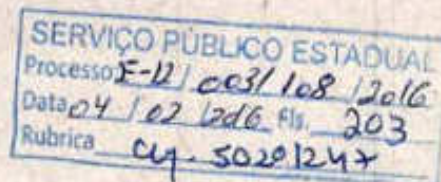 SERVIÇO PÚBLICO ESTADUAL
Processo E-12 / 003 / 108 / 2016
Data 04 / 02 / 2016 Fls. 203
Rubrica 50201247